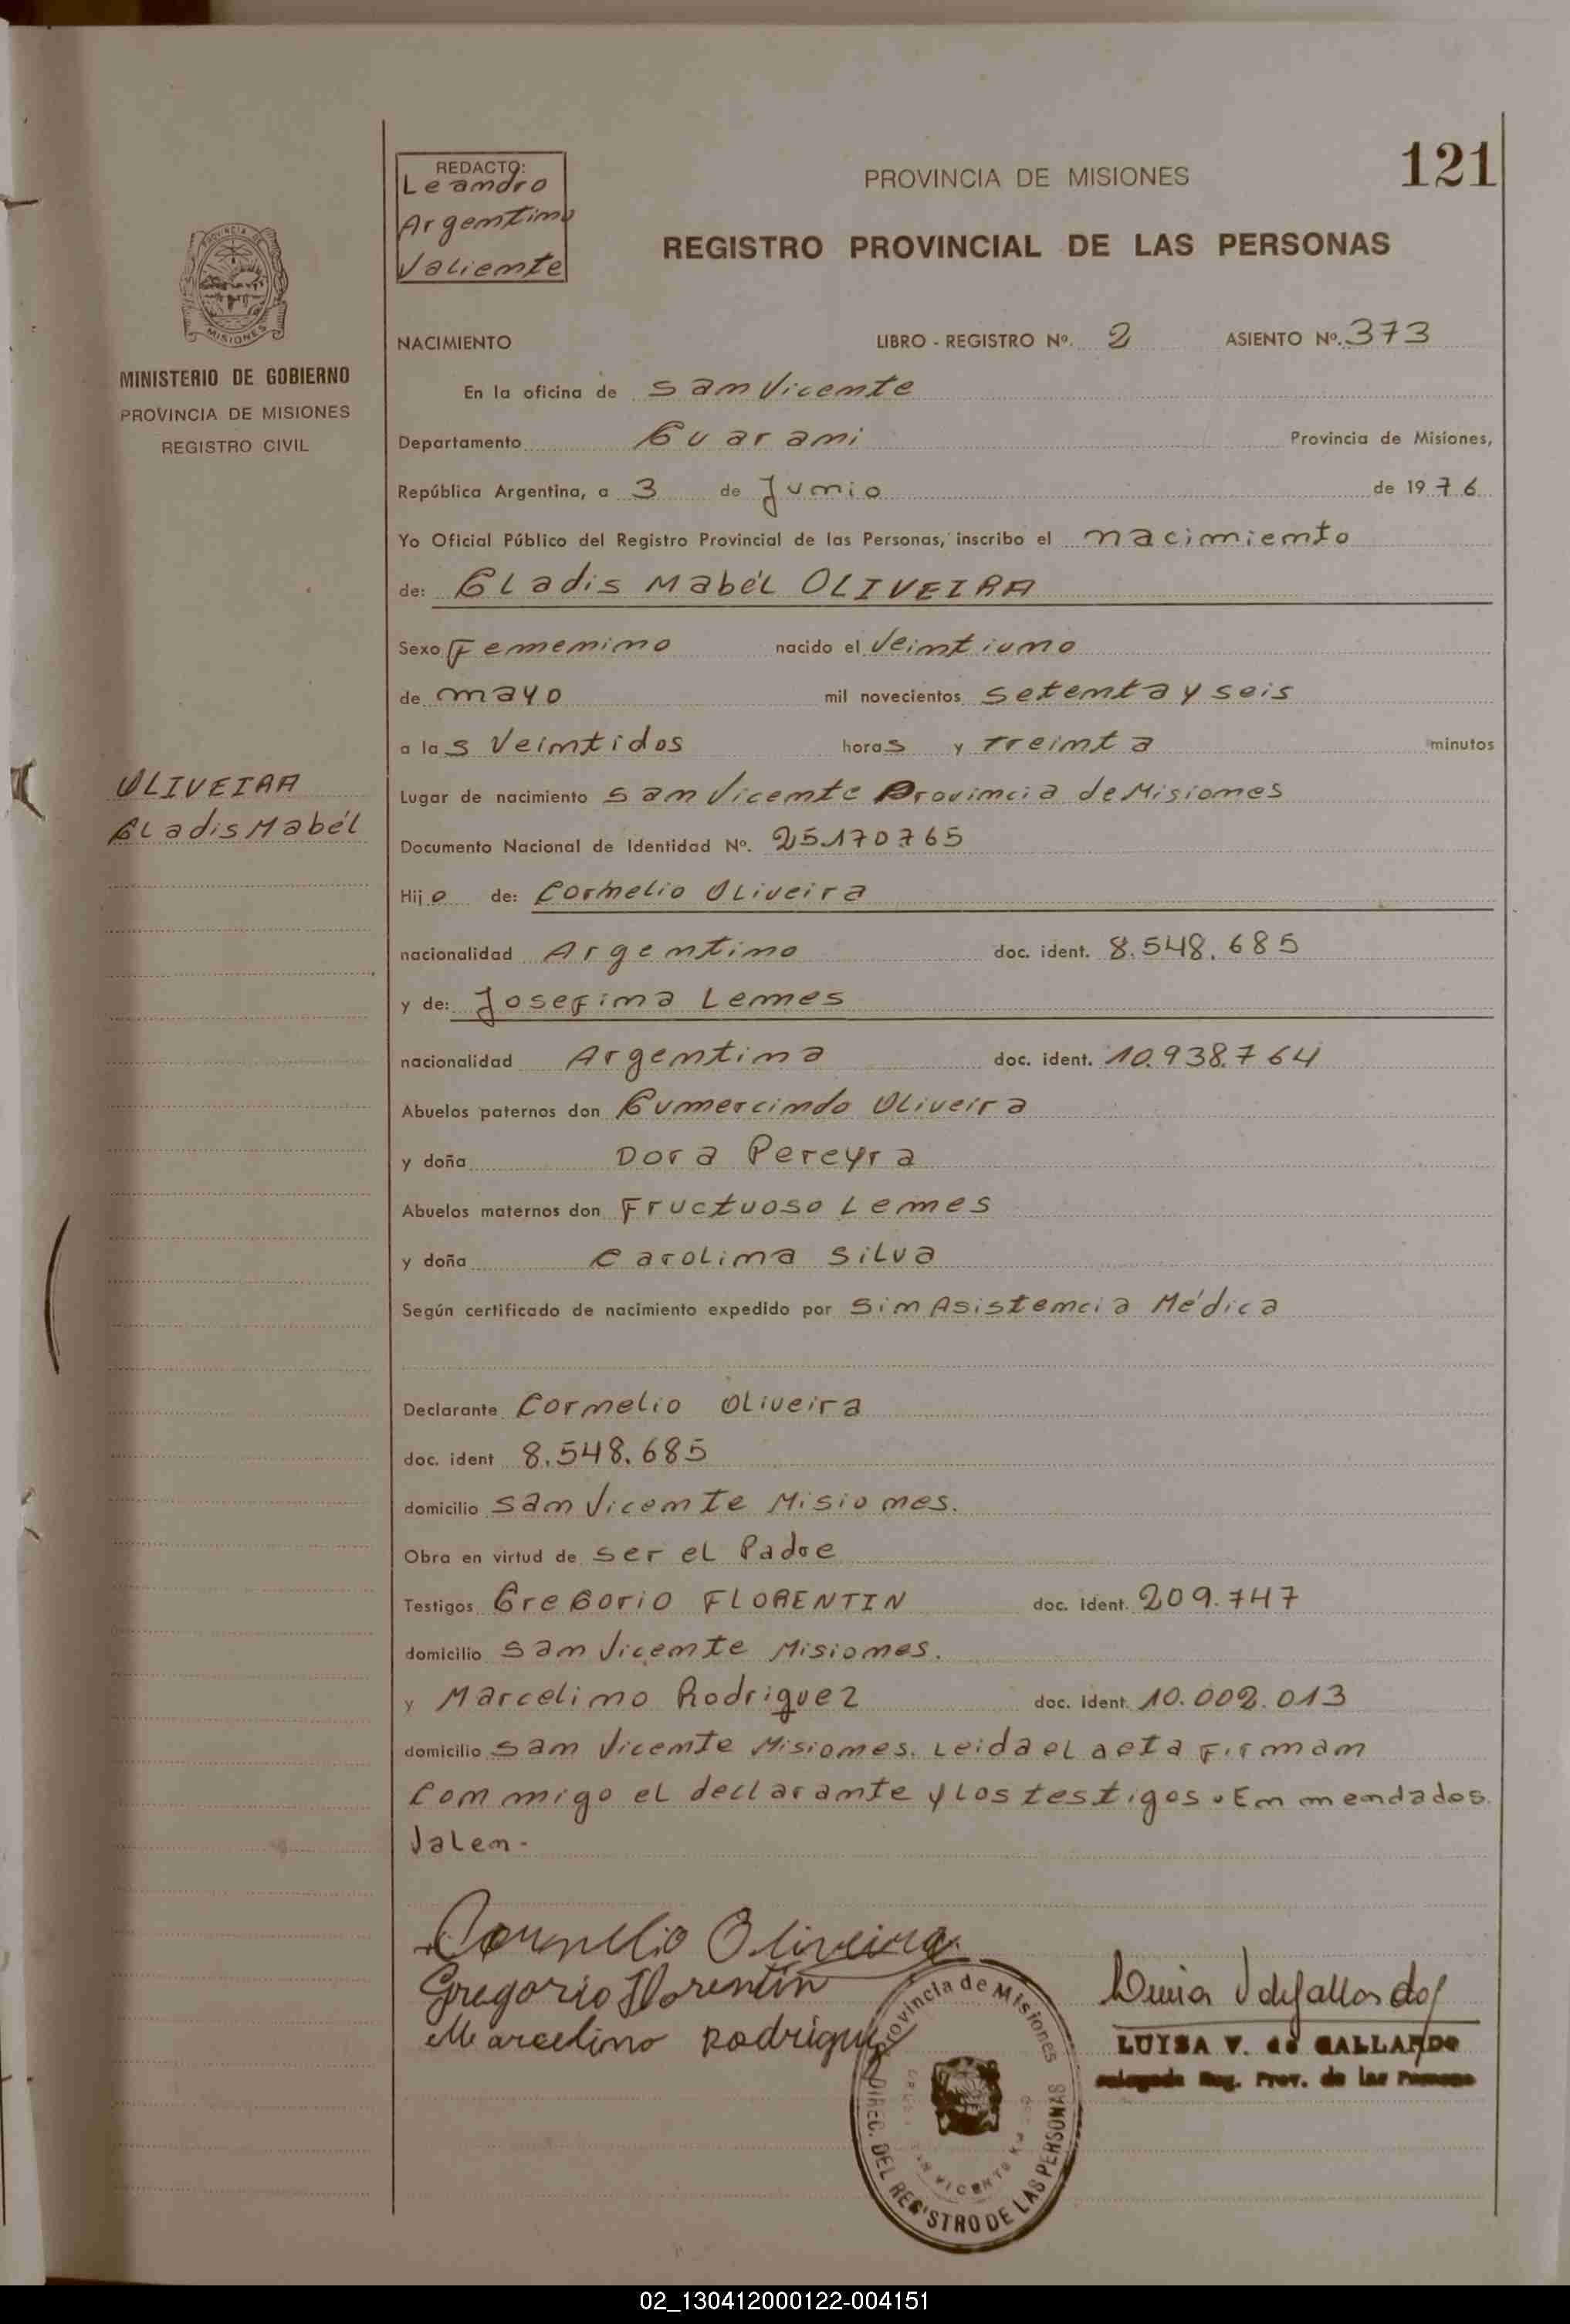 121
REDACTO:
Leandro
Argentino
Valiente
PROVINCIA DE MISIONES
REGISTRO PROVINCIAL DE LAS PERSONAS
PROVINCIA DE
MISIONES
MINISTERIO DE GOBIERNO
PROVINCIA DE MISIONES
REGISTRO CIVIL
NACIMIENTO LIBRO - REGISTRO Nº. 2 ASIENTO Nº. 373
En la oficina de San Vicente
Departamento Guarani Provincia de Misiones,
República Argentina, a 3 de Junio de 1976
Yo Oficial Público del Registro Provincial de las Personas, inscribo el nacimiento
de: Gladis Mabél OLIVEIRA
Sexo Femenino nacido el Veintiuno
de mayo mil novecientos setenta y seis
a las Veintidos horas y Treinta minutos
OLIVEIRA
Gladis Mabél
Lugar de nacimiento San Vicente Provincia de Misiones
Documento Nacional de Identidad Nº. 25.170765
Hijo de: Cornelio Oliveira
nacionalidad Argentino doc. ident. 8.548.685
y de: Josefina Lemes
nacionalidad Argentina doc. ident. 10.938.764
Abuelos paternos don Gumercindo Oliveira
y doña Dora Pereyra
Abuelos maternos don Fructuoso Lemes
y doña Carolina Silva
Según certificado de nacimiento expedido por Sin Asistencia Médica
Declarante Cornelio Oliveira
doc. ident 8.548.685
domicilio San Vicente Misiones.
Obra en virtud de ser el Padre
Testigos Gregorio FLORENTIN doc. ident. 209.747
domicilio San Vicente Misiones.
y Marcelino Rodriguez doc. ident. 10.002.013
domicilio San Vicente Misiones. Leida el acta Firman
Conmigo el declarante y los testigos. Enmendados
Valen-
Cornelio Oliveira
Gregorio Florentín
Marcelino Rodriguez
LUISA V. de GALLARDO
Reg. Prov. de las Personas
Provincia de Misiones
DIREC. DEL REGISTRO DE LAS PERSONAS
02_130412000122-004151